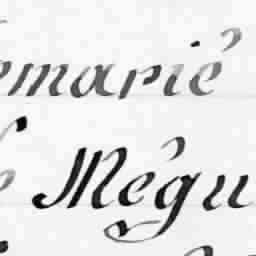 emarié
Mégu